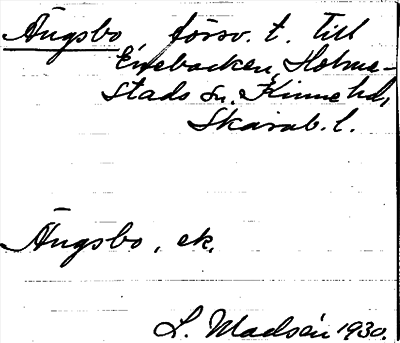 Ängsbo försv. t. till
Enebacken, Holme-
stads sn. Kinne hd,
Skarab. l.
Ängsbo, ek.
L. Madsén 1930.